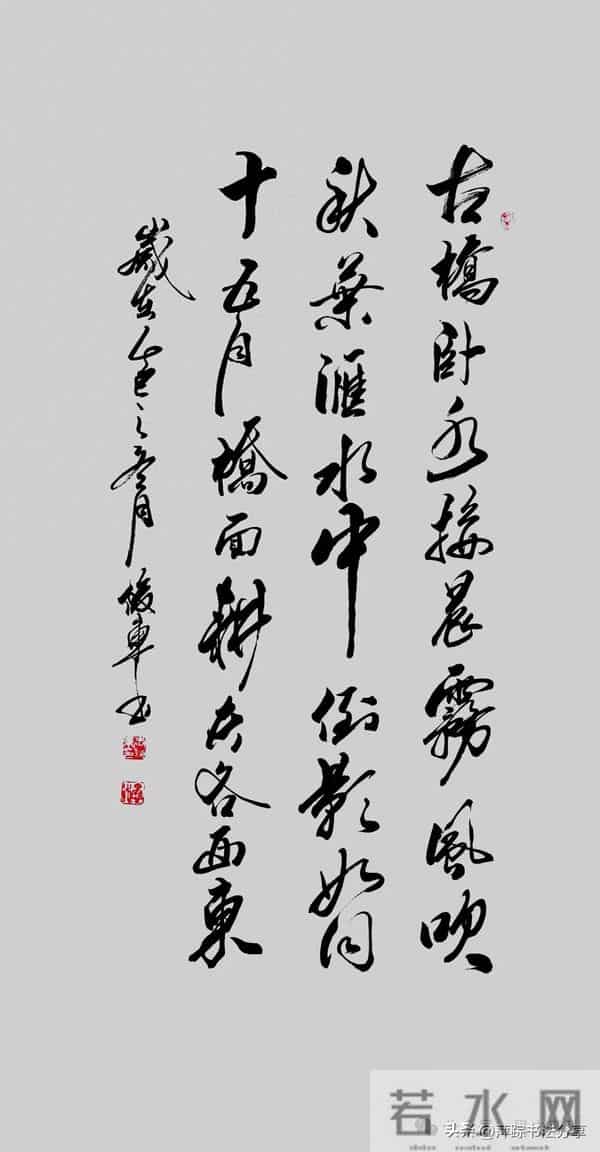 古橋卧接晨霧風吹
秋葉滙水中倒影如同
十五月橋面耕夫各西東
歲在乙巳之月俊車书
若水网
头条@萍踪书法分享